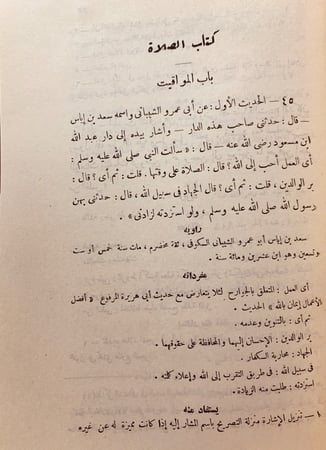 كتاب الصلاة
باب المواقيت
٤٥ – الحديث الأول : عن أبي عمرو الشيباني واسمه سعد بن إياس
– قال : حدثني صاحب هذه الدار – وأشار بيده إلى دار عبد الله
ابن مسعود رضي الله عنه – قال : « سألت النبي صلى الله عليه وسلم :
أي العمل أحب إلى الله ؟ قال : الصلاة على وقتها . قلت : ثم أي ؟ قال :
بر الوالدين ، قلت : ثم أي ؟ قال الجهاد في سبيل الله ، قال : حدثني بهن
رسول الله صلى الله عليه وسلم ، ولو استزدته لزادني » .
راويه
سعد بن إياس أبو عمرو الشيباني السكوفي ، ثقة مخضرم ، مات سنة خمس أو ست
وتسعين وهو ابن عشرين ومائة سنة .
مفرداته
أي العمل : المتعلق بالجوارح لئلا يتعارض مع حديث أبي هريرة المرفوع « أفضل
الأعمال إيمان بالله » الحديث .
ثم أي : بالتنوين وعدمه .
بر الوالدين : الإحسان إليهما والمحافظة على حقوقهما .
الجهاد : محاربة الكفار .
في سبيل الله : في طريق التقرب إلى الله وإعلاء كلمته .
استزدته : طلبت منه الزيادة .
يستفاد منه
١ – تنزيل الإشارة منزلة التصريح باسم المشار إليه إذا كانت مميزة له عن غيره